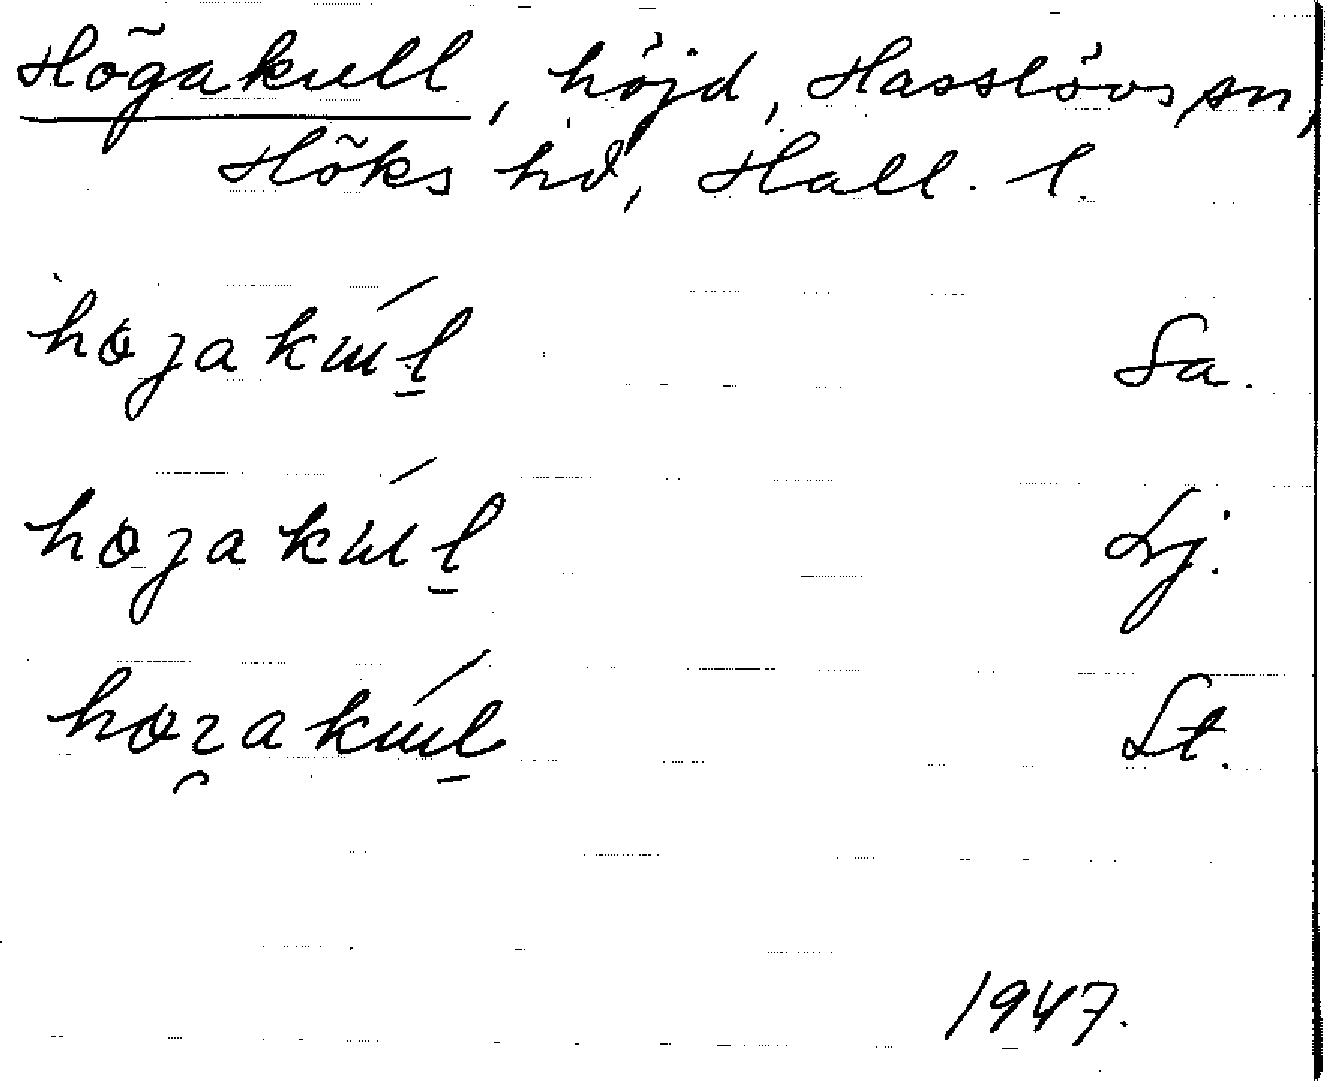 Högakull, höjd, Hasslövs sn,
Höks hd, Hall. l.
høȝakúl̲ Sa.
høȝakúl̲ Lj.
høɀakúl̲ St.
1947.